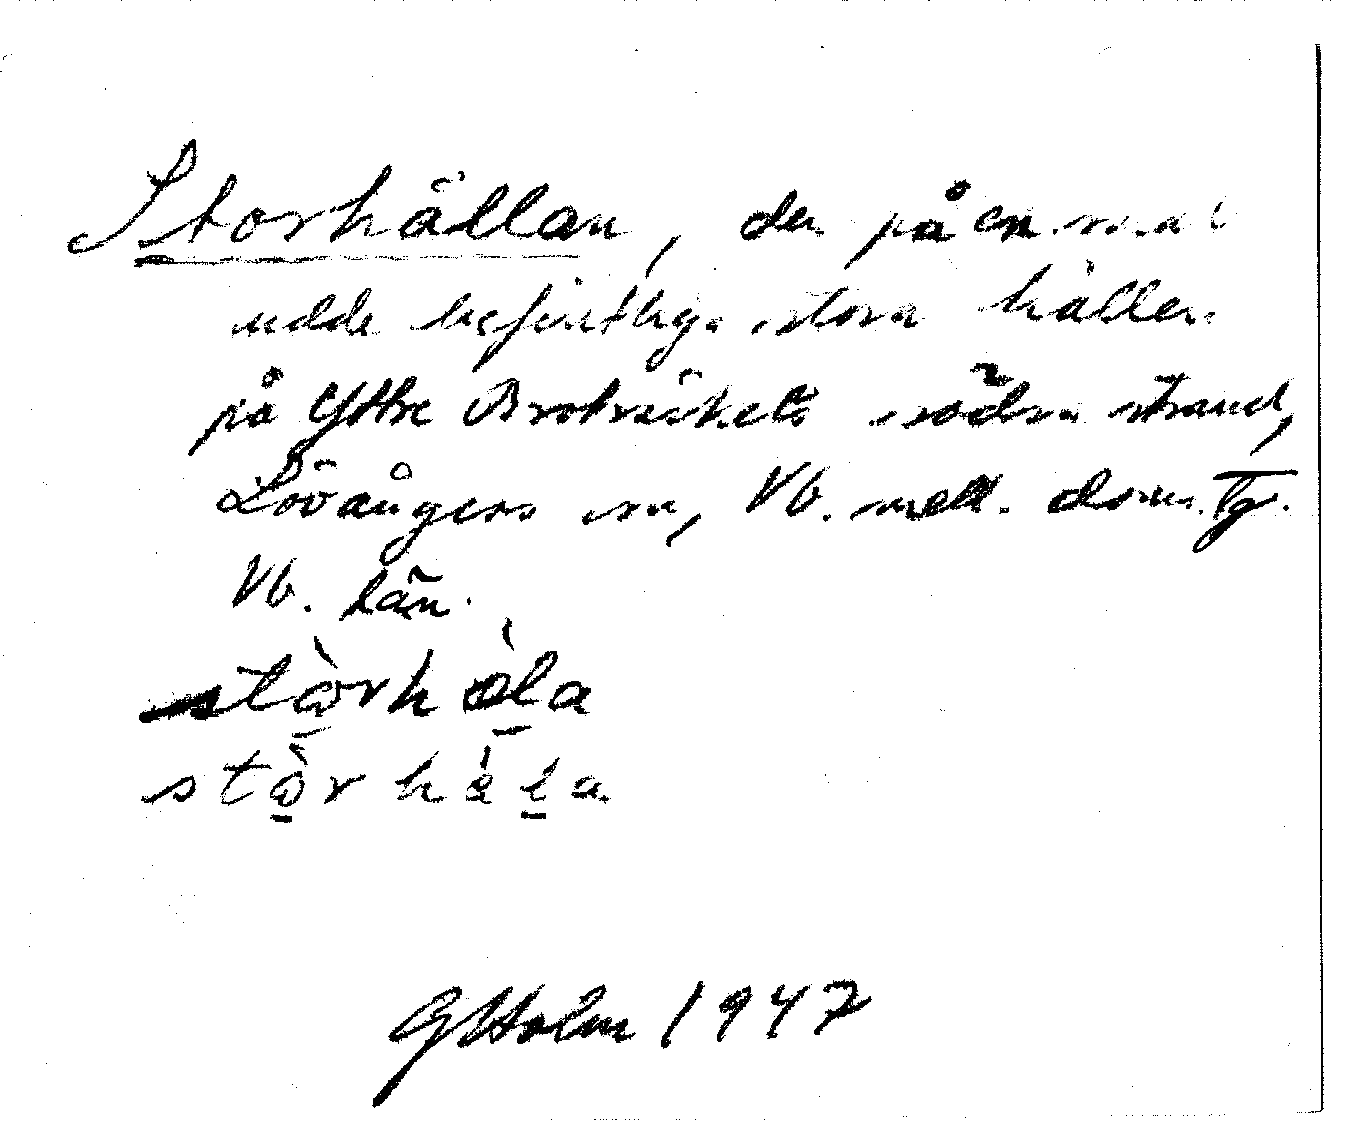 Storhällan, den på en smal
udde befintliga stora hällen
på Yttre Broträskets södra strand,
Lövångers sn, Vb. mell. doms. Tg.
Vb. län.
stòrhòla
stòrhàla
GHolm 1947